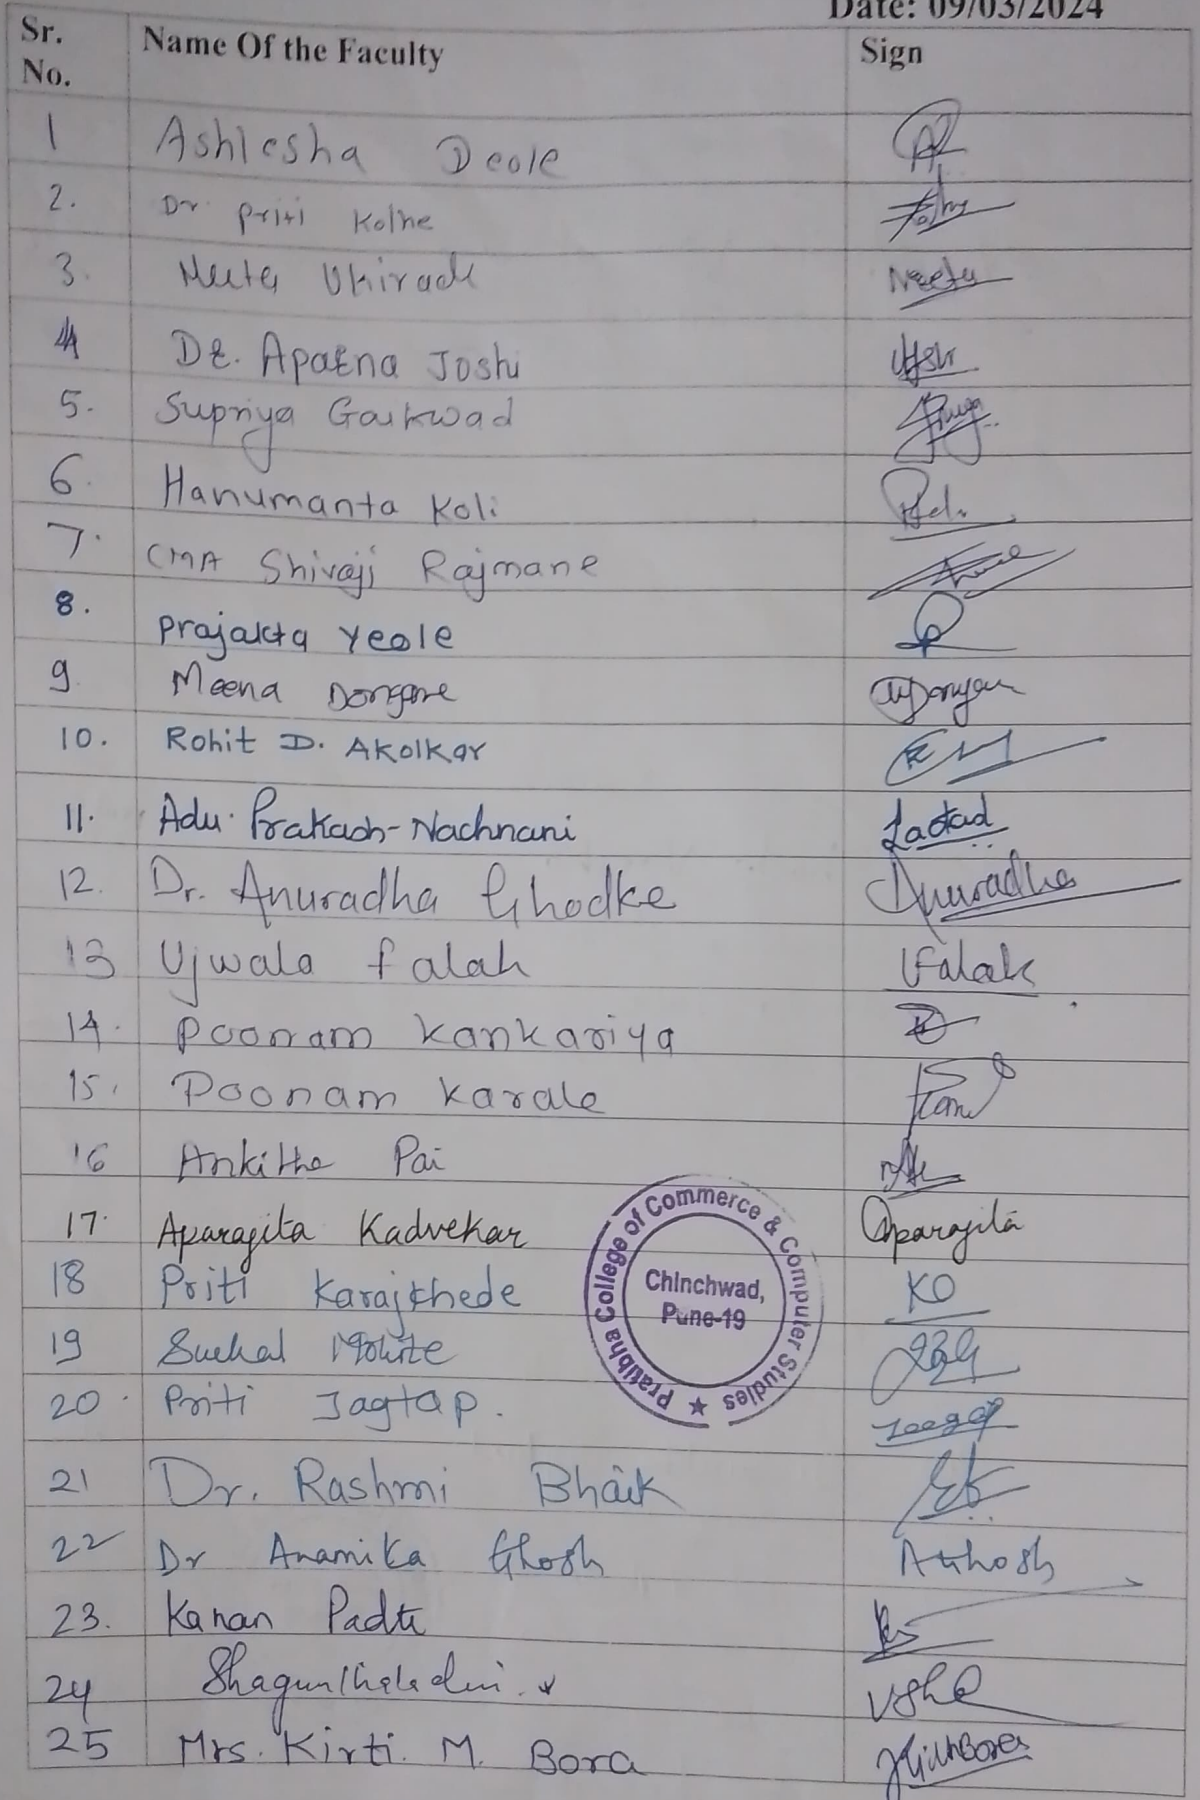 Date: 09/03/2024
Sr. No. Name Of the Faculty Sign
1 Ashlesha Deole
2. Dr Priti Kolhe
3. Neeta Ukirade Neeta
4 Dr. Aparna Joshi
5. Supriya Gaikwad
6. Hanumanta Koli
7. CMA Shivaji Rajmane
8. Prajakta Yeole
9 Meena Dongare
10. Rohit D. Akolkar
11. Adv. Prakash Nachnani
12. Dr. Anuradha Ghodke Anuradha
13 Ujwala Falak UFalak
14. Poonam Kankariya
15. Poonam Karale
16 Ankitha Pai
17. Aparajita Kadvekar Aparajita
18 Priti Karajkhede KO
19
20. Priti Jagtap.
21 Dr. Rashmi
22 Dr Anamika Ghosh AGhosh
23. Kanan
24
25 Mrs. Kirti. M. Bora
Pratibha College of Commerce & Computer Studies ★
Chinchwad,
Pune-19